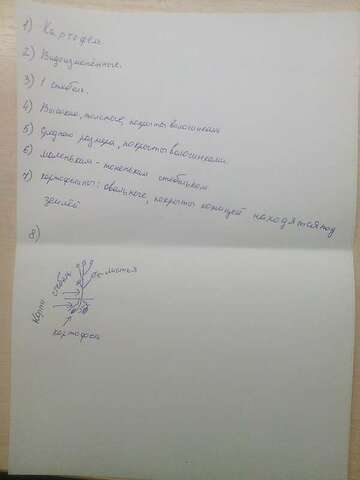 1) Картофель
2) Видоизменённые.
3) 1 стебель.
4) Высокие, толстые, покрыты волосинками
5) Средного размера, покрыты волосинками.
6) маленькая - тоненьким стебельком
7) картофелины: овального, покрыты кожицей находятся под
землёй
8)
стебель
листья
Корни
картофель